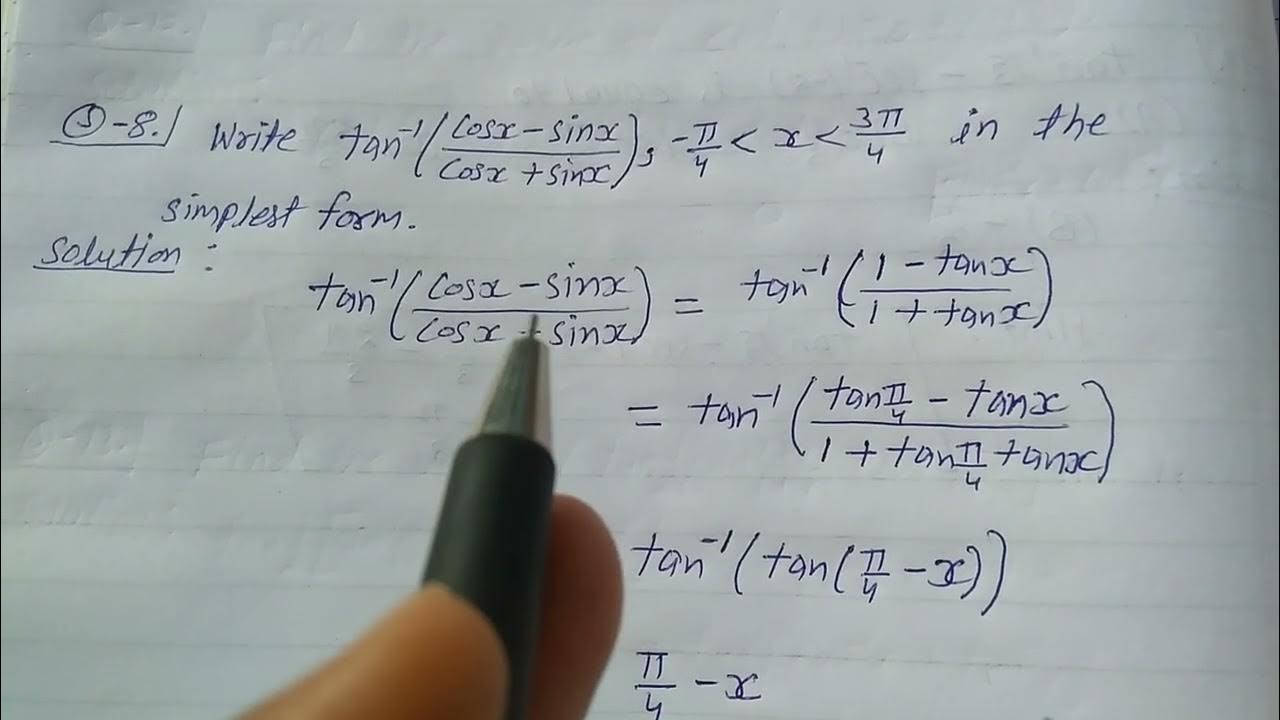 Q-8./ Write tan⁻¹(cosx - sinx / cosx + sinx), -π/4 < x < 3π/4 in the
simplest form.
Solution :
tan⁻¹(cosx - sinx / cosx + sinx) = tan⁻¹(1 - tanx / 1 + tanx)
= tan⁻¹(tanπ/4 - tanx / 1 + tanπ/4 tanx)
tan⁻¹(tan(π/4 - x))
π/4 - x